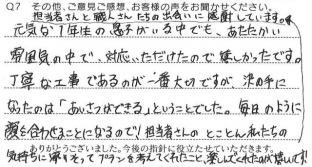 Q7 その他、ご意見ご感想、お客様の声をお聞かせください。
担当者さんと職人さんたちの出会いに感謝しています。
元気な1年生の息子がいる中でも、あたたかい
雰囲気の中で、対応いただけたので嬉しかったです。
丁寧な工事であるのが一番大切ですが、決め手に
なったのは「あいさつができる」ということでした。毎日のように
顔を合わせることになるので！担当者さんの とことん私たちの
ありがとうございました。今後の指針に役立たせていただきます。
気持ちに寄りそってプランを考えてくれたこと、楽しんでくれたのが